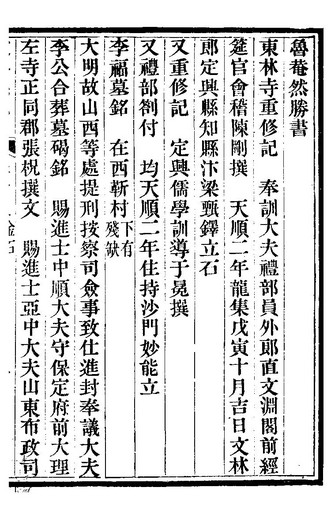 魯菴然勝書
東林寺重修記　奉訓大夫禮部員外郎直文淵閣前經
筵官會稽陳剛撰　天順二年龍集戊寅十月吉日文林
郎定興縣知縣汴梁甄鐸立石
又重修記　定興儒學訓導于冕撰
又禮部劄付　均天順二年住持沙門妙能立
李福墓銘　在西靳村下有殘缺
大明故山西等處提刑按察司僉事致仕進封奉議大夫
李公合葬墓碣銘　賜進士中順大夫守保定府前大理
左寺正同郡張棁撰文　賜進士亞中大夫山東布政司
金石